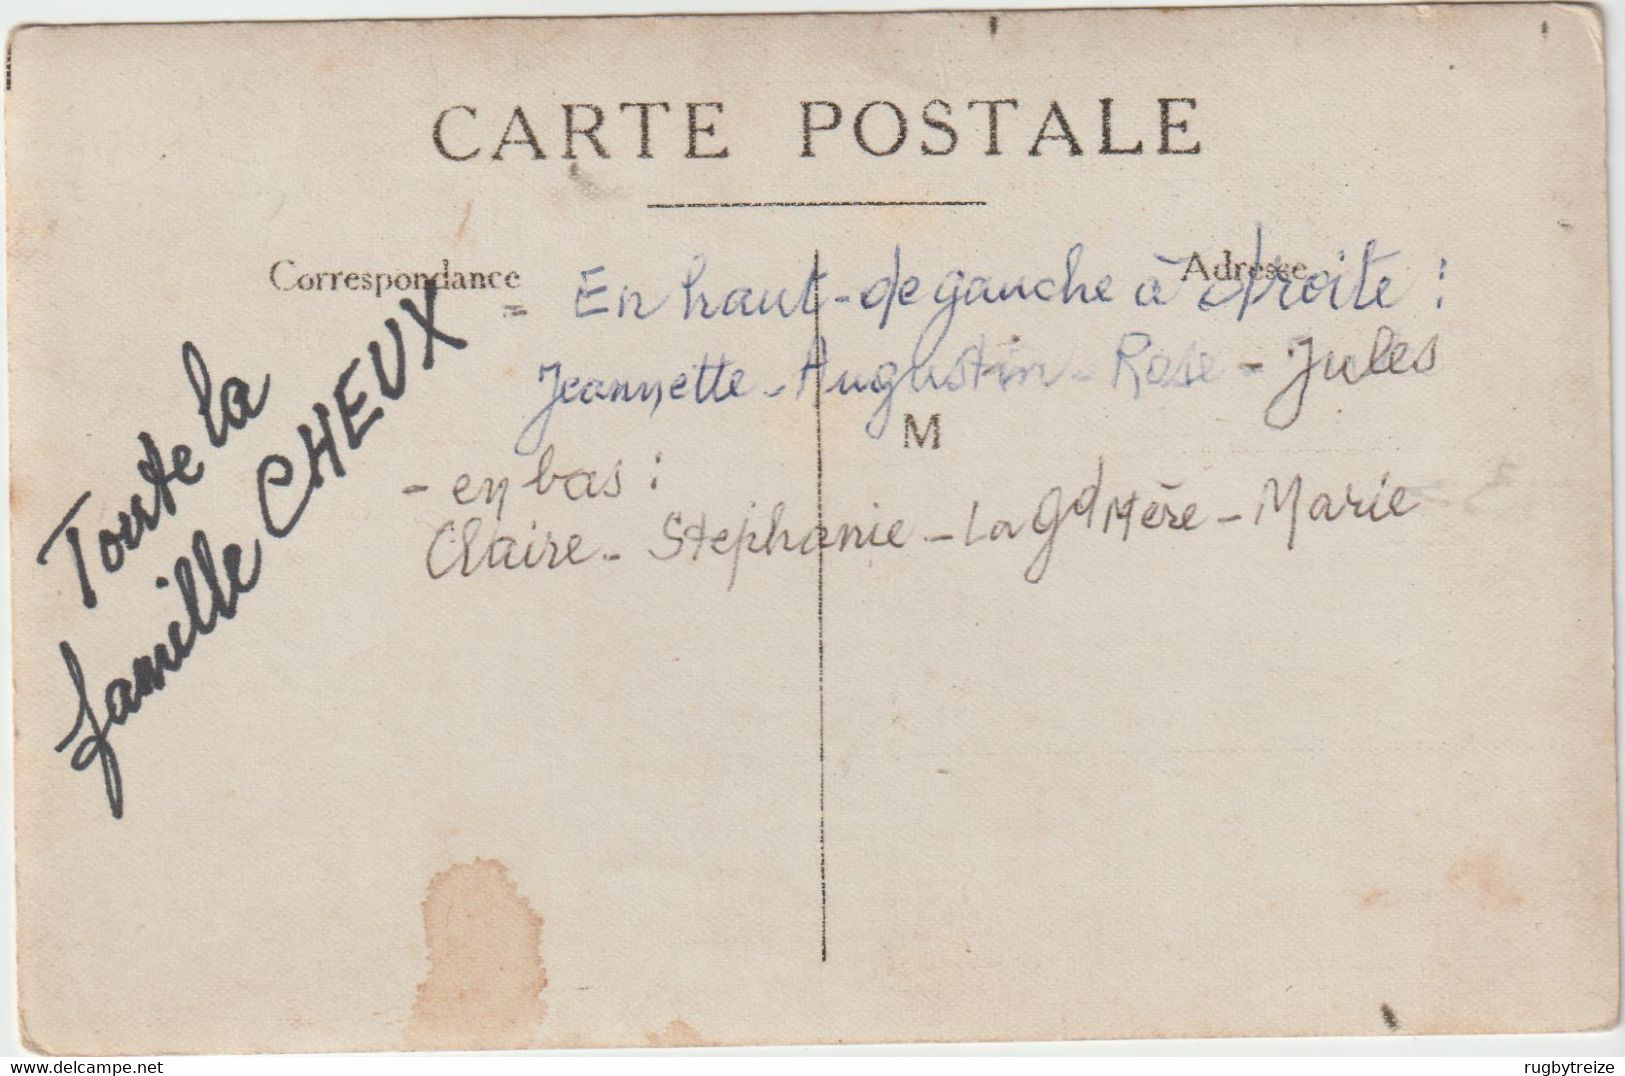 CARTE POSTALE
Correspondance
Adresse
= En haut - de gauche à droite :
Jeannette - Augustin - Rose - Jules
M
- en bas :
Claire - Stephanie - La Gd Mère - Marie
Toute la
famille CHEUX
www.delcampe.net
rugbytreize